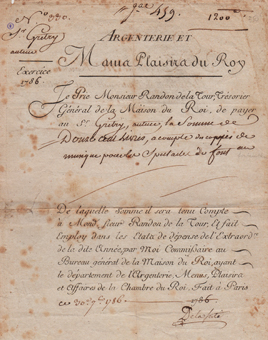 N° 330.
459
1200
Sr Gretry
auteur
ARGENTERIE ET
Menus Plaisirs du Roy
Exercice
1786
Je Prie Monsieur Randon de la Tour, Trésorier
Général de la Maison du Roi, de payer
au Sr. Gretry, auteur, la somme de
Douze cent livres, acompte de copies de
musique pour les Spectacles de
De laquelle somme il sera tenu Compte
à Mond. Sieur Randon de la Tour, et fait
Employ dans les Etats de dépense de l'Extraord.
de la dite Année, par Moi Commissaire au
Bureau général de la Maison du Roi, ayant
le département de l'Argenterie, Menus, Plaisirs
et Affaires de la Chambre du Roi. Fait à Paris
ce 1786